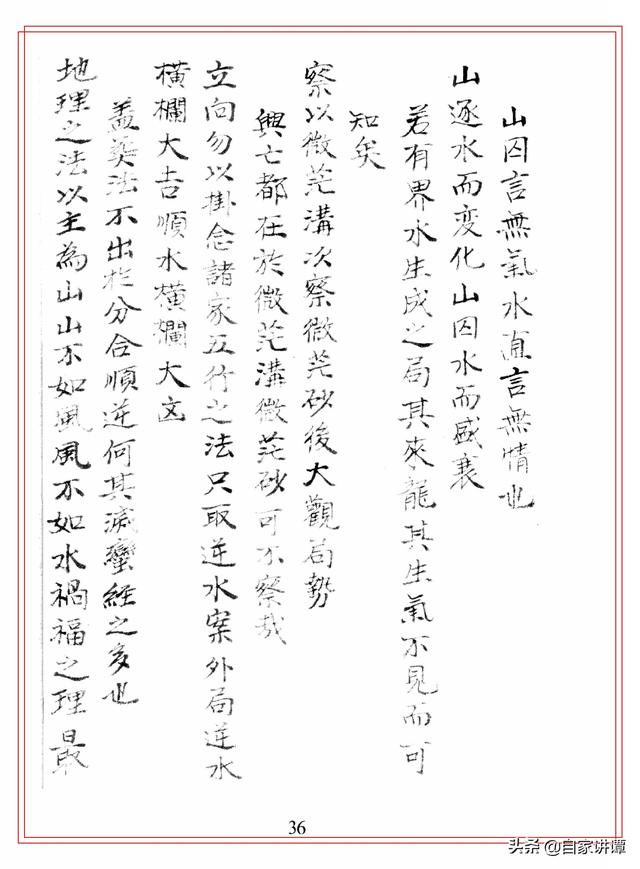 山囚言無氣水直言無情也
山逐水而変化山囚水而盛衰
若有界水生成之局其來龍其生氣不見而可
知矣
察以微茫溝次察微茫砂後大觀局勢
興亡都在於微茫溝微茫砂可不察哉
立向勿以掛念諸家五行之法只取逆水案外局逆水
橫欄大吉順水橫欄大凶
盖葬法不出於分合順逆何其滿蠻經之多也
地理之法以主為山山不如風風不如水禍福之理最
36
头条 @自家讲谭